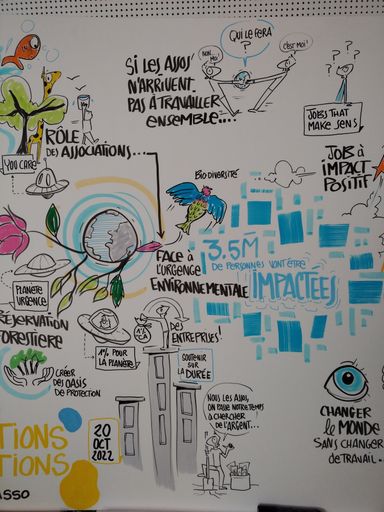 QUI LE FERA
?
NON, MOI
C'EST MOI!
SI LES ASSOS
N'ARRIVENT
PAS À TRAVAILLER
ENSEMBLE....
? ? ?
JOBS THAT
MAKE SENS
RÔLE
DES ASSOCIATIONS...
YOU CARE
JOB À
IMPACT
POSITIF
BIODIVERSITÉ
3.5M
DE PERSONNES VONT ÊTRE
IMPACTÉES
FACE À
L'URGENCE
ENVIRONNEMENTALE
PLANÈTE
URGENCE
RÉSERVATION
FORESTIERE
CRÉER
DES OASIS
DE PROTECTION
1% POUR
LA PLANÈTE
DES
ENTREPRISES!
SOUTENIR
SUR
LA DURÉE
NOUS LES ASSOS,
ON PASSE NOTRE TEMPS
À CHERCHER
DE L'ARGENT...
CHANGER
le MONDE
SANS CHANGER
DE TRAVAIL...
TIONS
TIONS
20
OCT
2022
ASSO